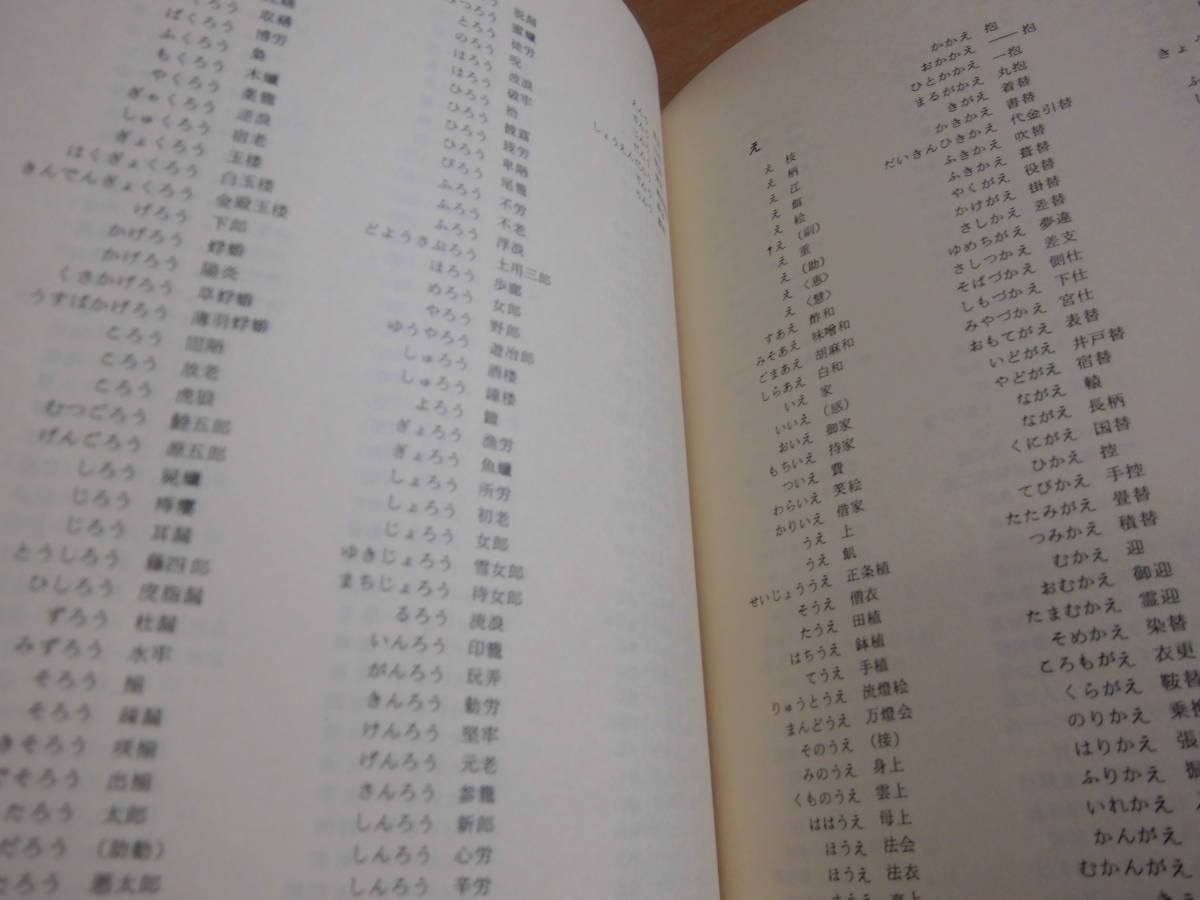 ばくろう 博労
ふくろう 梟
もくろう 木蠟
やくろう 薬籠
ぎゃくろう 逆浪
しゅくろう 宿老
ぎょくろう 玉楼
はくぎょくろう 白玉楼
きんでんぎょくろう 金殿玉楼
げろう 下郎
かげろう 蜉蝣
かげろう 陽炎
くさかげろう 草蜉蝣
うすばかげろう 薄羽蜉蝣
ころう 固陋
ころう 故老
ころう 虎狼
むつごろう 鯥五郎
げんごろう 源五郎
しろう 屍蠟
じろう 痔瘻
じろう 耳漏
とうしろう 藤四郎
ひしろう 皮脂漏
ずろう 杜漏
みずろう 水牢
そろう 揃
そろう 疎漏
きそろう 咲揃
でそろう 出揃
たろう 太郎
だろう (助動)
たろう 悪太郎
蜜蠟
とろう 徒労
のろう 呪
はろう 波浪
はろう 破牢
ひろう 拾
ひろう 披露
ひろう 疲労
ひろう 卑陋
びろう 尾籠
ふろう 不労
ふろう 不老
ふろう 浮浪
どようさぶろう 土用三郎
ほろう 歩廊
めろう 女郎
やろう 野郎
ゆうやろう 遊冶郎
しゅろう 酒楼
しゅろう 鐘楼
よろう 鎧
ぎょろう 漁労
ぎょろう 魚蠟
しょろう 所労
しょろう 初老
じょろう 女郎
ゆきじょろう 雪女郎
まちじょろう 待女郎
るろう 流浪
いんろう 印籠
がんろう 玩弄
きんろう 勤労
けんろう 堅牢
げんろう 元老
さんろう 参籠
しんろう 新郎
しんろう 心労
しんろう 辛労
え
え 枝
え 柄
え 江
え 餌
え 絵
†え (副)
え 重
え (助)
え 〈恵〉
え 〈慧〉
すあえ 酢和
みそあえ 味噌和
ごまあえ 胡麻和
しらあえ 白和
いえ 家
いいえ (感)
おいえ 御家
もちいえ 持家
ついえ 費
わらいえ 笑絵
かりいえ 借家
うえ 上
うえ 飢
せいじょううえ 正条植
そうえ 僧衣
たうえ 田植
はちうえ 鉢植
てうえ 手植
りゅうとうえ 流燈絵
まんどうえ 万燈会
そのうえ (接)
みのうえ 身上
くものうえ 雲上
ははうえ 母上
ほうえ 法会
ほうえ 法衣
かかえ 抱
おかかえ ―抱
ひとかかえ 一抱
まるがかえ 丸抱
きがえ 着替
かきかえ 書替
だいきんひきかえ 代金引替
ふきかえ 吹替
ふきかえ 葺替
やくがえ 役替
かけがえ 掛替
さしかえ 差替
ゆめちがえ 夢違
さしつかえ 差支
そばづかえ 側仕
しもづかえ 下仕
みやづかえ 宮仕
おもてがえ 表替
いどがえ 井戸替
やどがえ 宿替
ながえ 轅
ながえ 長柄
くにがえ 国替
ひかえ 控
てびかえ 手控
たたみがえ 畳替
つみかえ 積替
むかえ 迎
おむかえ 御迎
たまむかえ 霊迎
そめかえ 染替
ころもがえ 衣更
くらがえ 鞍替
のりかえ 乗換
はりかえ 張
ふりかえ 振
いれかえ
かんがえ
むかんがえ